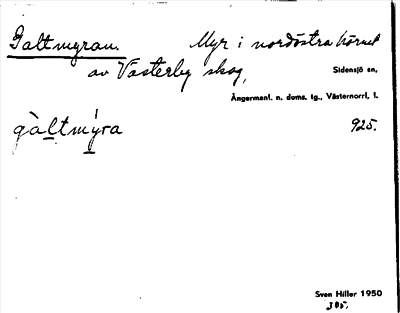 Galtmyran. Myr i nordöstra hörnet
av Västerby skog, Sidensjö sn,
Ångermanl. n. doms. tg., Västernorrl. l.
gàl̲tmýra 925.
Sven Hiller 1950